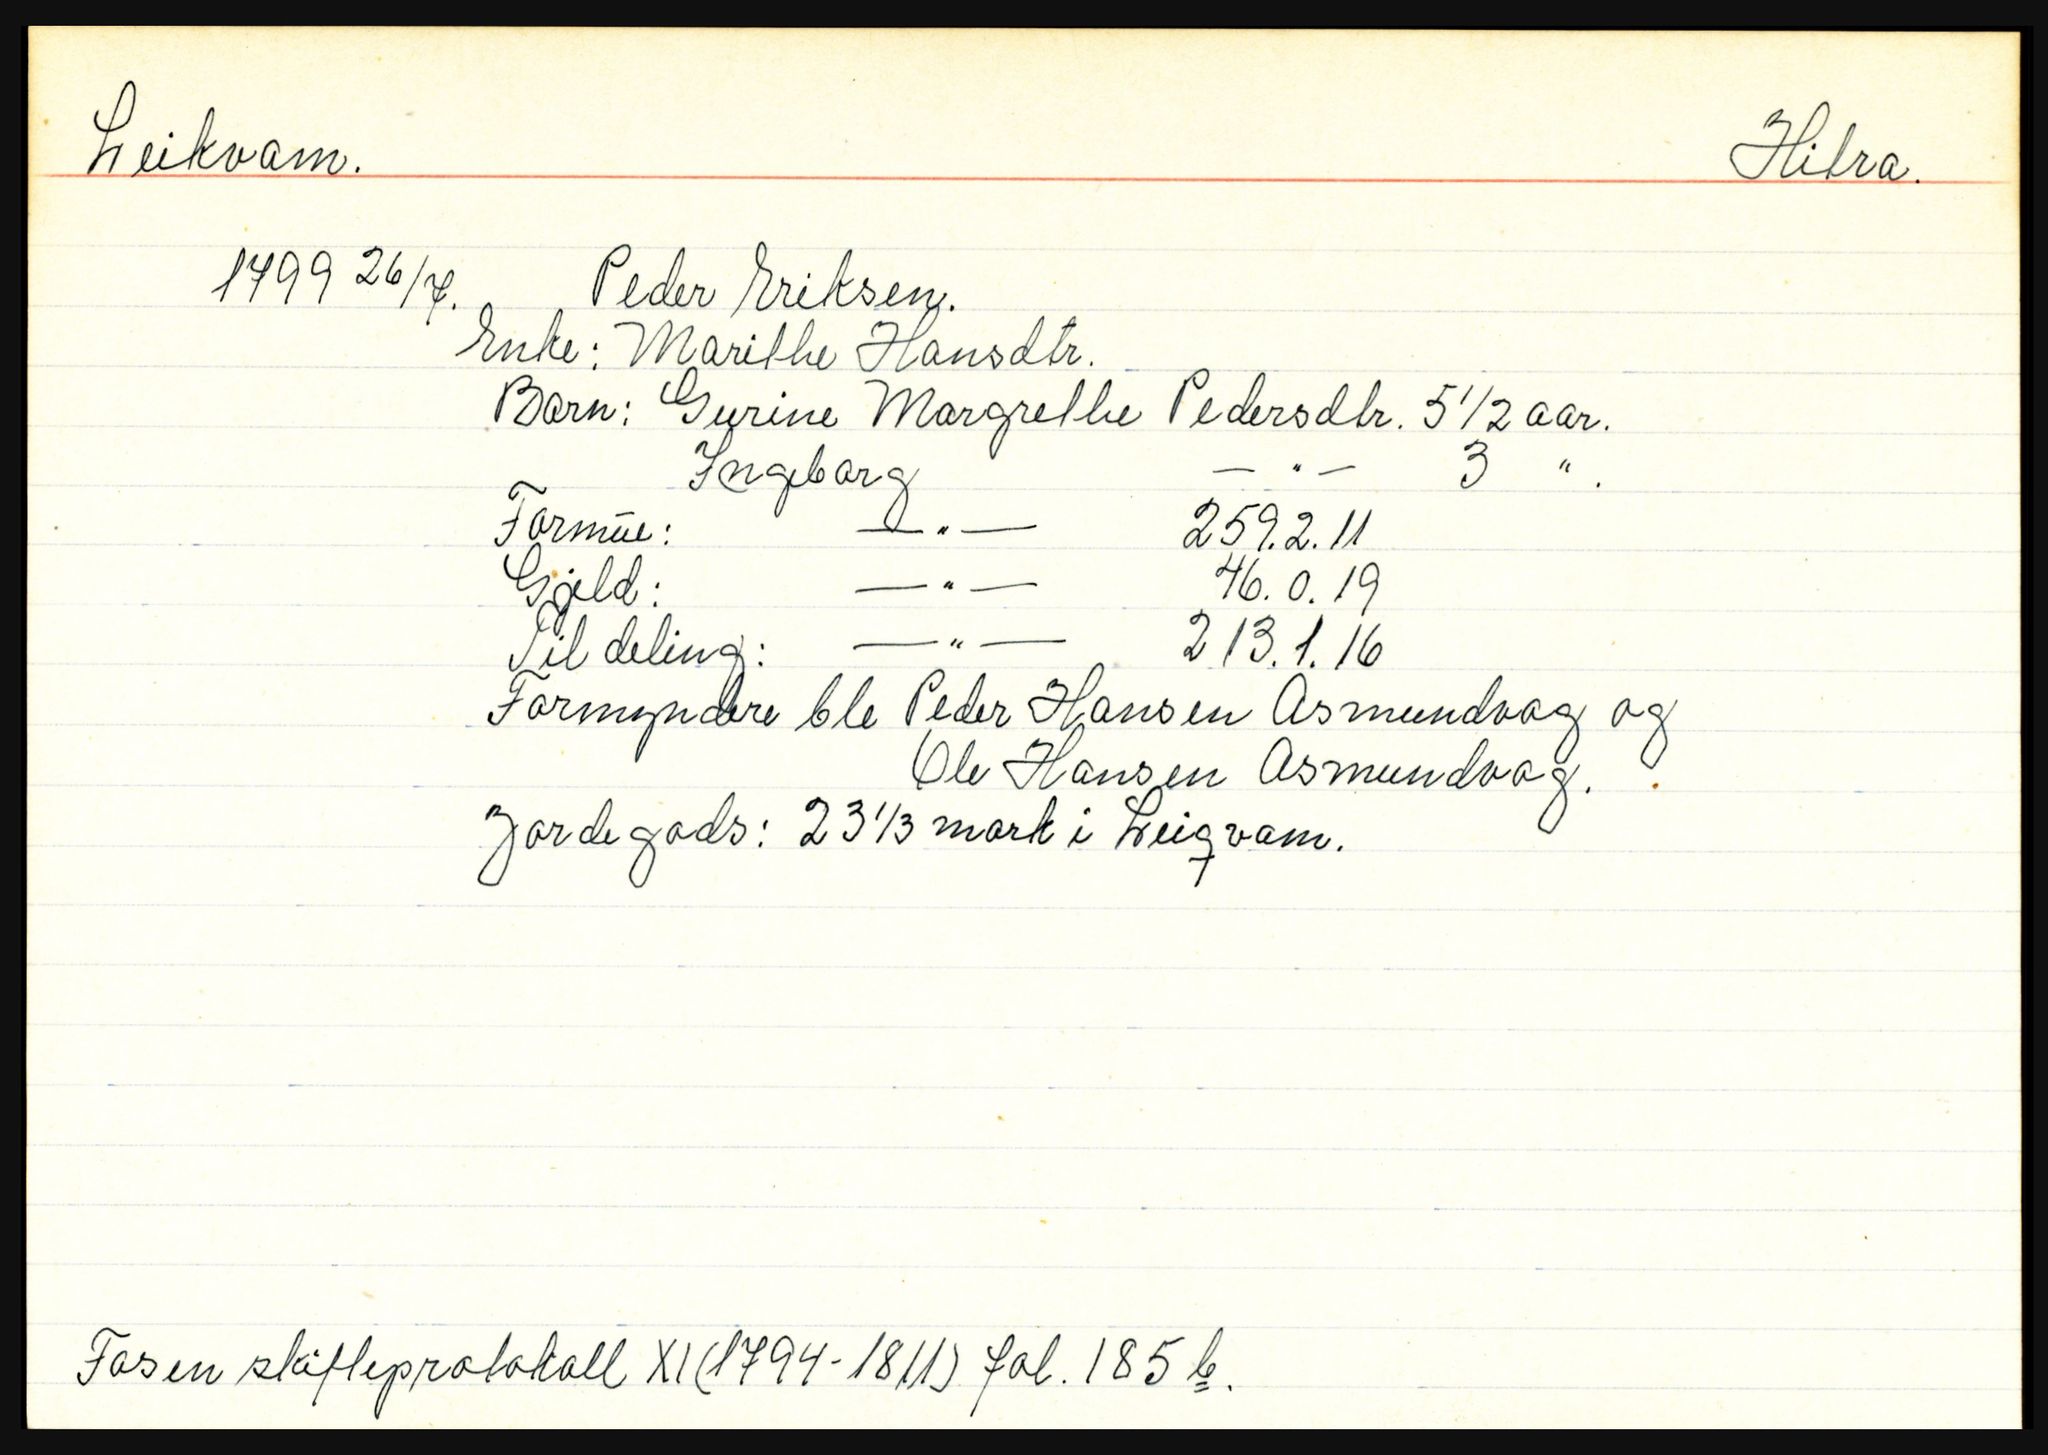 Leikvam. Hitra.
1799 26/7. Peder Eriksen.
Enke: Marithe Hansdtr.
Barn: Gurine Margrethe Pedersdtr. 5 1/2 aar.
Ingeborg — " — 3 " .
Formüe: — " — 259. 2. 11
Gjeld: — " — 46. 0. 19
Til deling: — " — 213. 1. 16
Formyndere ble Peder Hansen Asmundvag og
Ole Hansen Asmundvag.
Jordegods: 23 1/3 mark i Leiqvam.
Fosen skifteprotokoll XI (1794-1811) fol. 185 b.